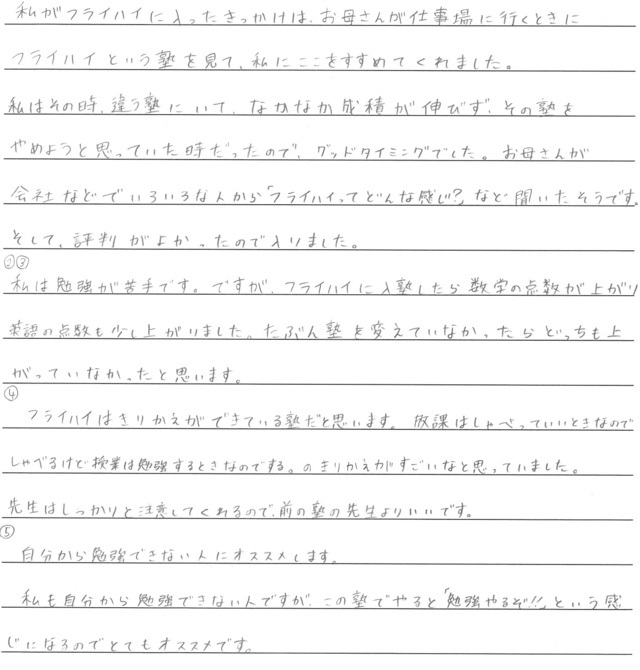 私がフライハイに入ったきっかけは、お母さんが仕事場に行くときに
フライハイという塾を見て、私にここをすすめてくれました。
私はその時、違う塾にいて、なかなか成積が伸びず、その塾を
やめようと思っていた時だったので、グッドタイミングでした。お母さんが
会社などでいろいろな人から「フライハイってどんな感じ?」など聞いたそうです。
そして、評判がよかったので入りました。
②③
私は勉強が苦手です。ですが、フライハイに入塾したら数学の点数が上がり
英語の点数も少し上がりました。たぶん塾を変えていなかったらどっちも上
がっていなかったと思います。
④
フライハイはきりかえができている塾だと思います。放課はしゃべっていいときなので
しゃべるけど授業は勉強するときなのでする。のきりかえがすごいなと思っていました。
先生はしっかりと注意してくれるので、前の塾の先生よりいいです。
⑤
自分から勉強できない人にオススメします。
私も自分から勉強できない人ですが、この塾でやると「勉強やるぞ!!」という感
じになるのでとてもオススメです。